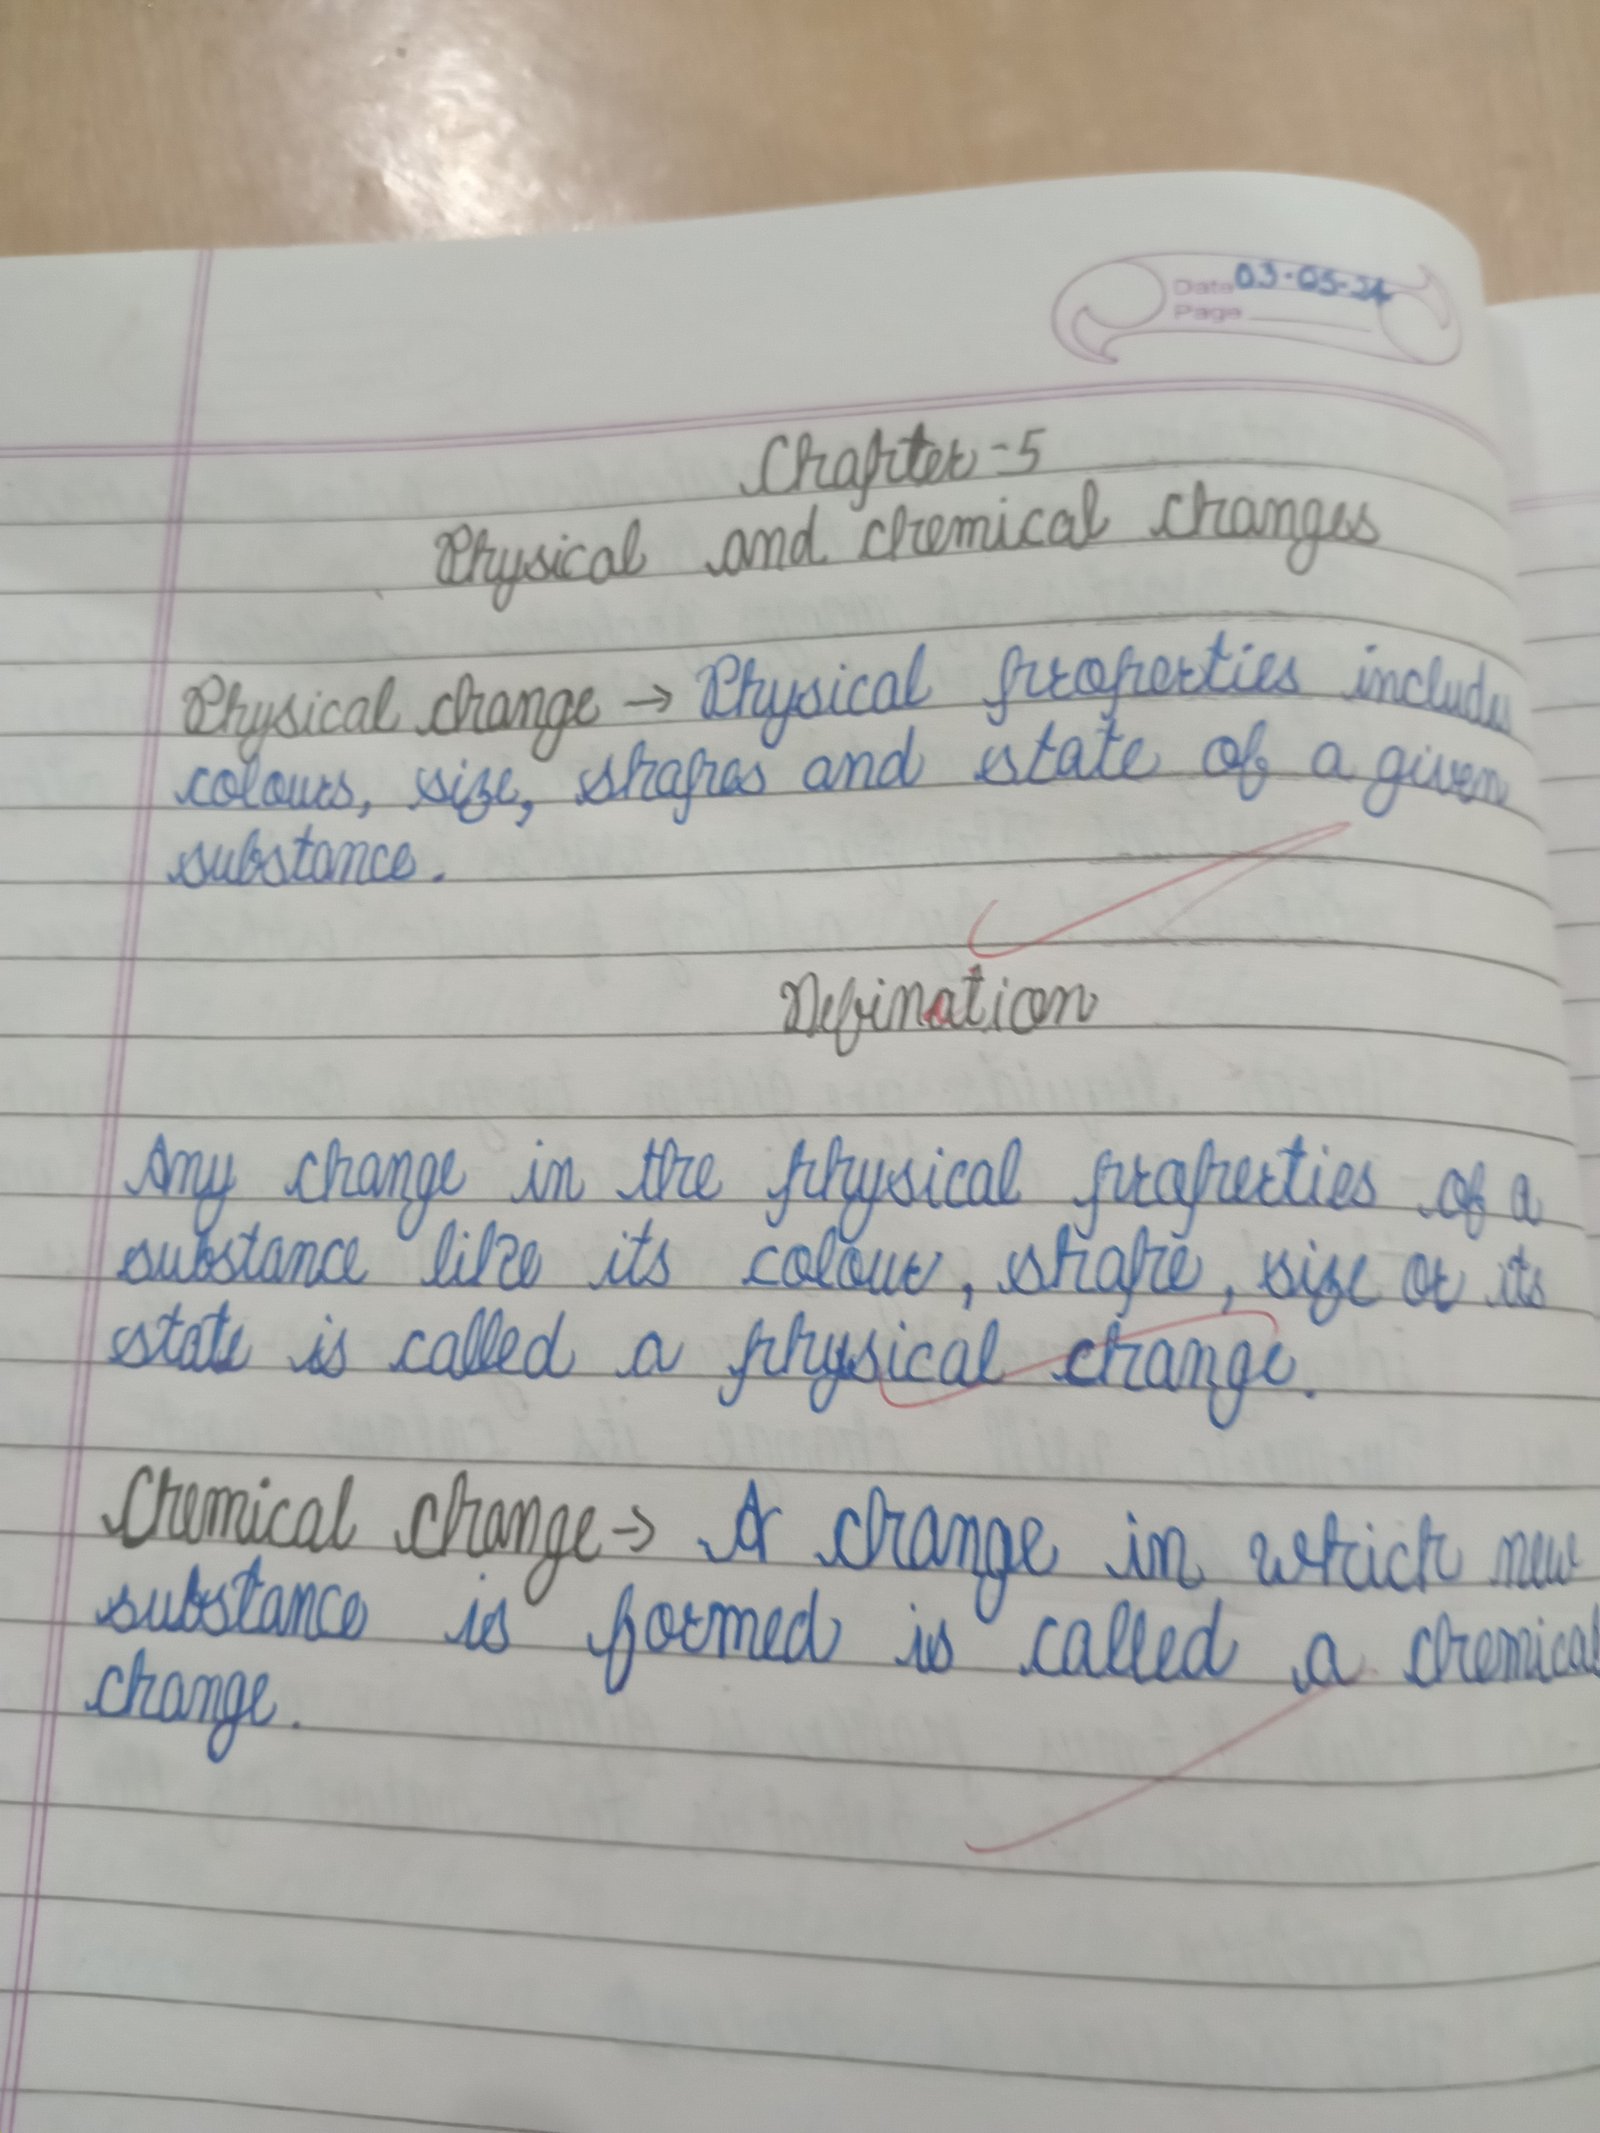 Date 03-05-24
Page
Chapter-5
Physical and chemical changes
Physical change → Physical properties include
colours, size, shapes and state of a given
substance.
Defination
Any change in the physical properties of a
substance like its colour, shape, size or its
state is called a physical change.
Chemical change → A change in which new
substance is formed is called a chemical
change.